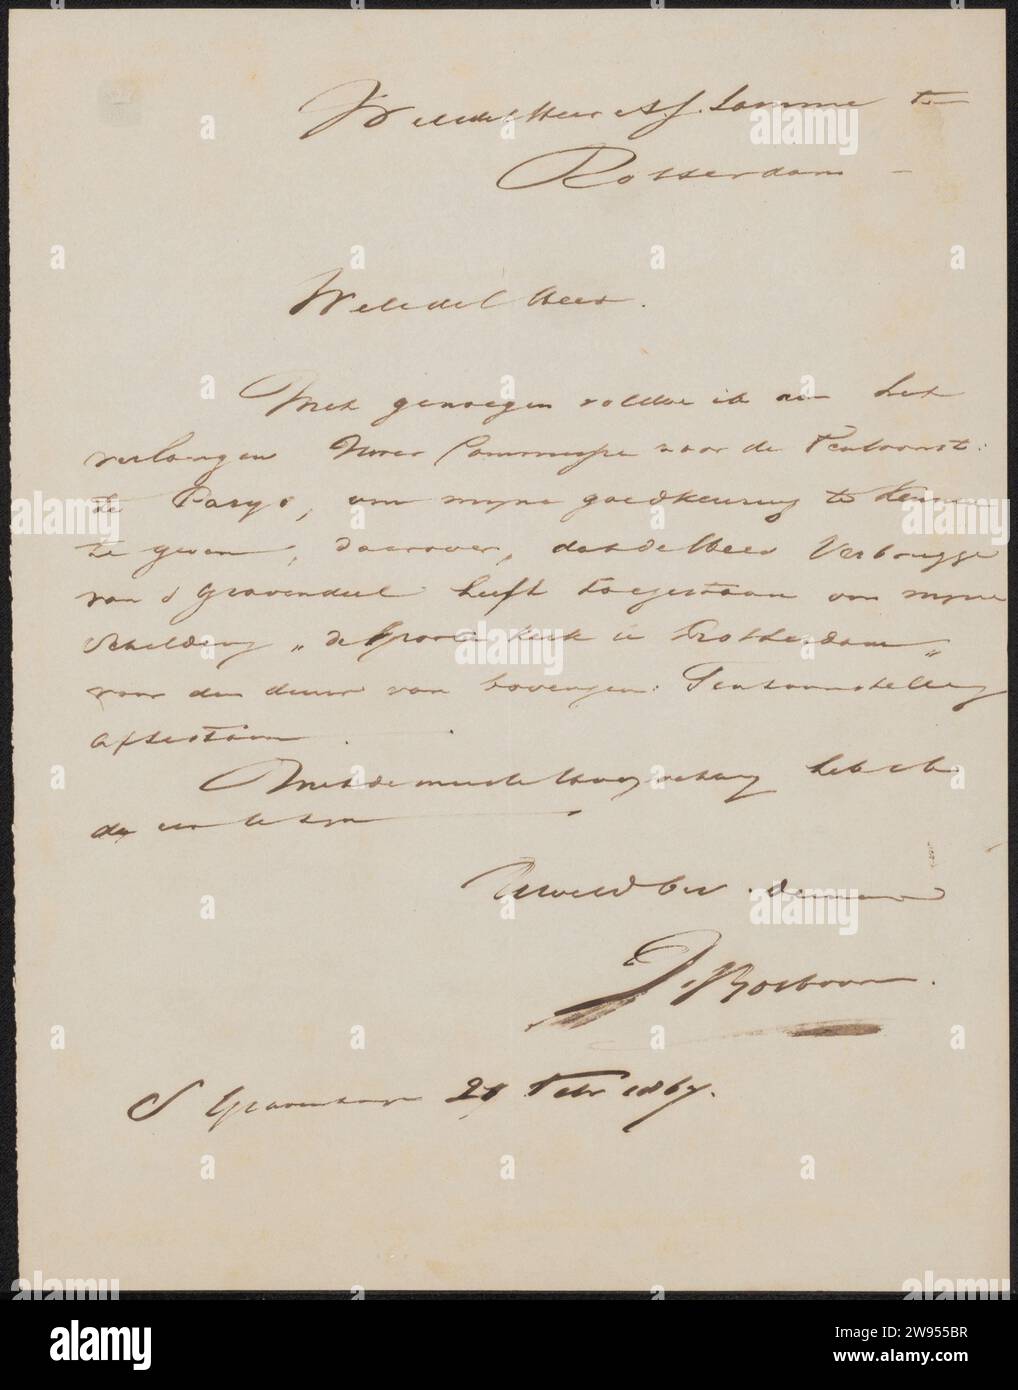 WelEdel Heer A. J. Lamme te
Rotterdam
WelEdel Heer.
Met genoegen voldoe ik aan het
verlangen Uwer Commissie voor de Tentoonst:
te Parijs, om mijne goedkeuring te kennen
te geven, daarover, dat de Heer Verbrugge
van s Gravendeel heeft toegestaan om mijne
Schildery „de Groote kerk te Rotterdam„
voor den duur van bovengen: Tentoonstelling
aftestaan.
Met de meeste Hoogachting heb ik
de eer te zyn
UwelEd dienaar
J. Bosboom.
S Gravenhage 21 Febr 1867.
alamy
a
www.alamy.com
Image ID: 2W955BR